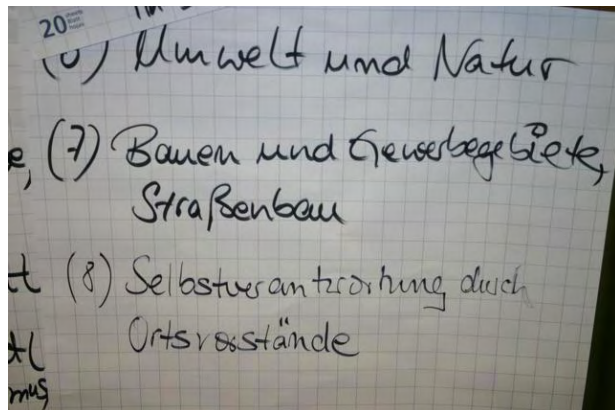 20
(6) Umwelt und Natur
e, (7) Bauen und Gewerbegebiete,
Straßenbau
t (8) Selbstverantwortung durch
Ortsvorstände
mus